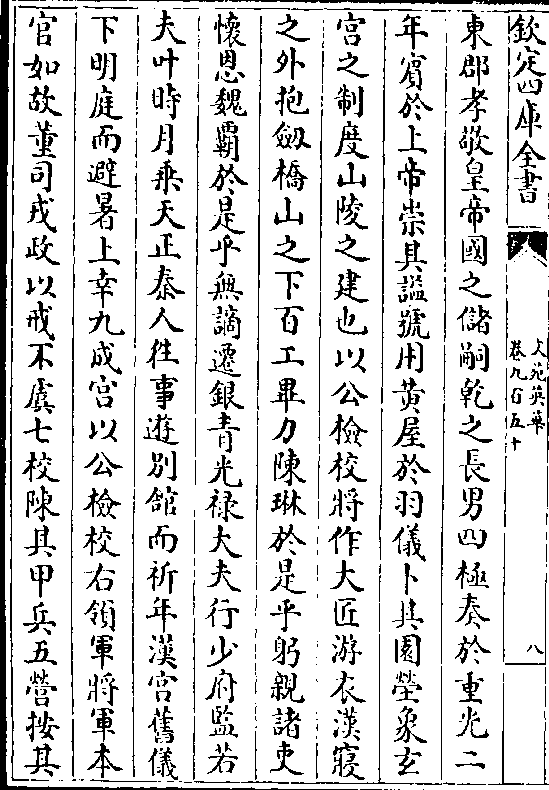 欽定四庫全書
文苑英華
卷九百五十
八
東郡孝敬皇帝國之儲嗣乾之長男四極奏於重光二
年賓於上帝崇其謚號用黄屋於羽儀卜其園塋象玄
宫之制度山陵之建也以公檢校將作大匠游衣漢寢
之外抱劔橋山之下百工畢力陳琳於是乎躬親諸吏
懷恩魏霸於是乎無謫遷銀青光禄大夫行少府監若
夫叶時月乗天正泰人徃事遊別舘而祈年漢宫舊儀
下明庭而避暑上幸九成宫以公檢校右領軍將軍本
官如故董司戎政以戒不虞七校陳其甲兵五營按其